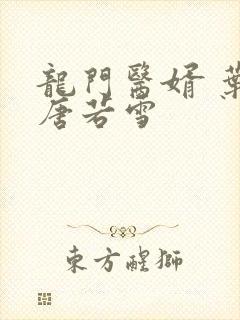 龍門醫婿 葉
唐若雪
東方醒獅